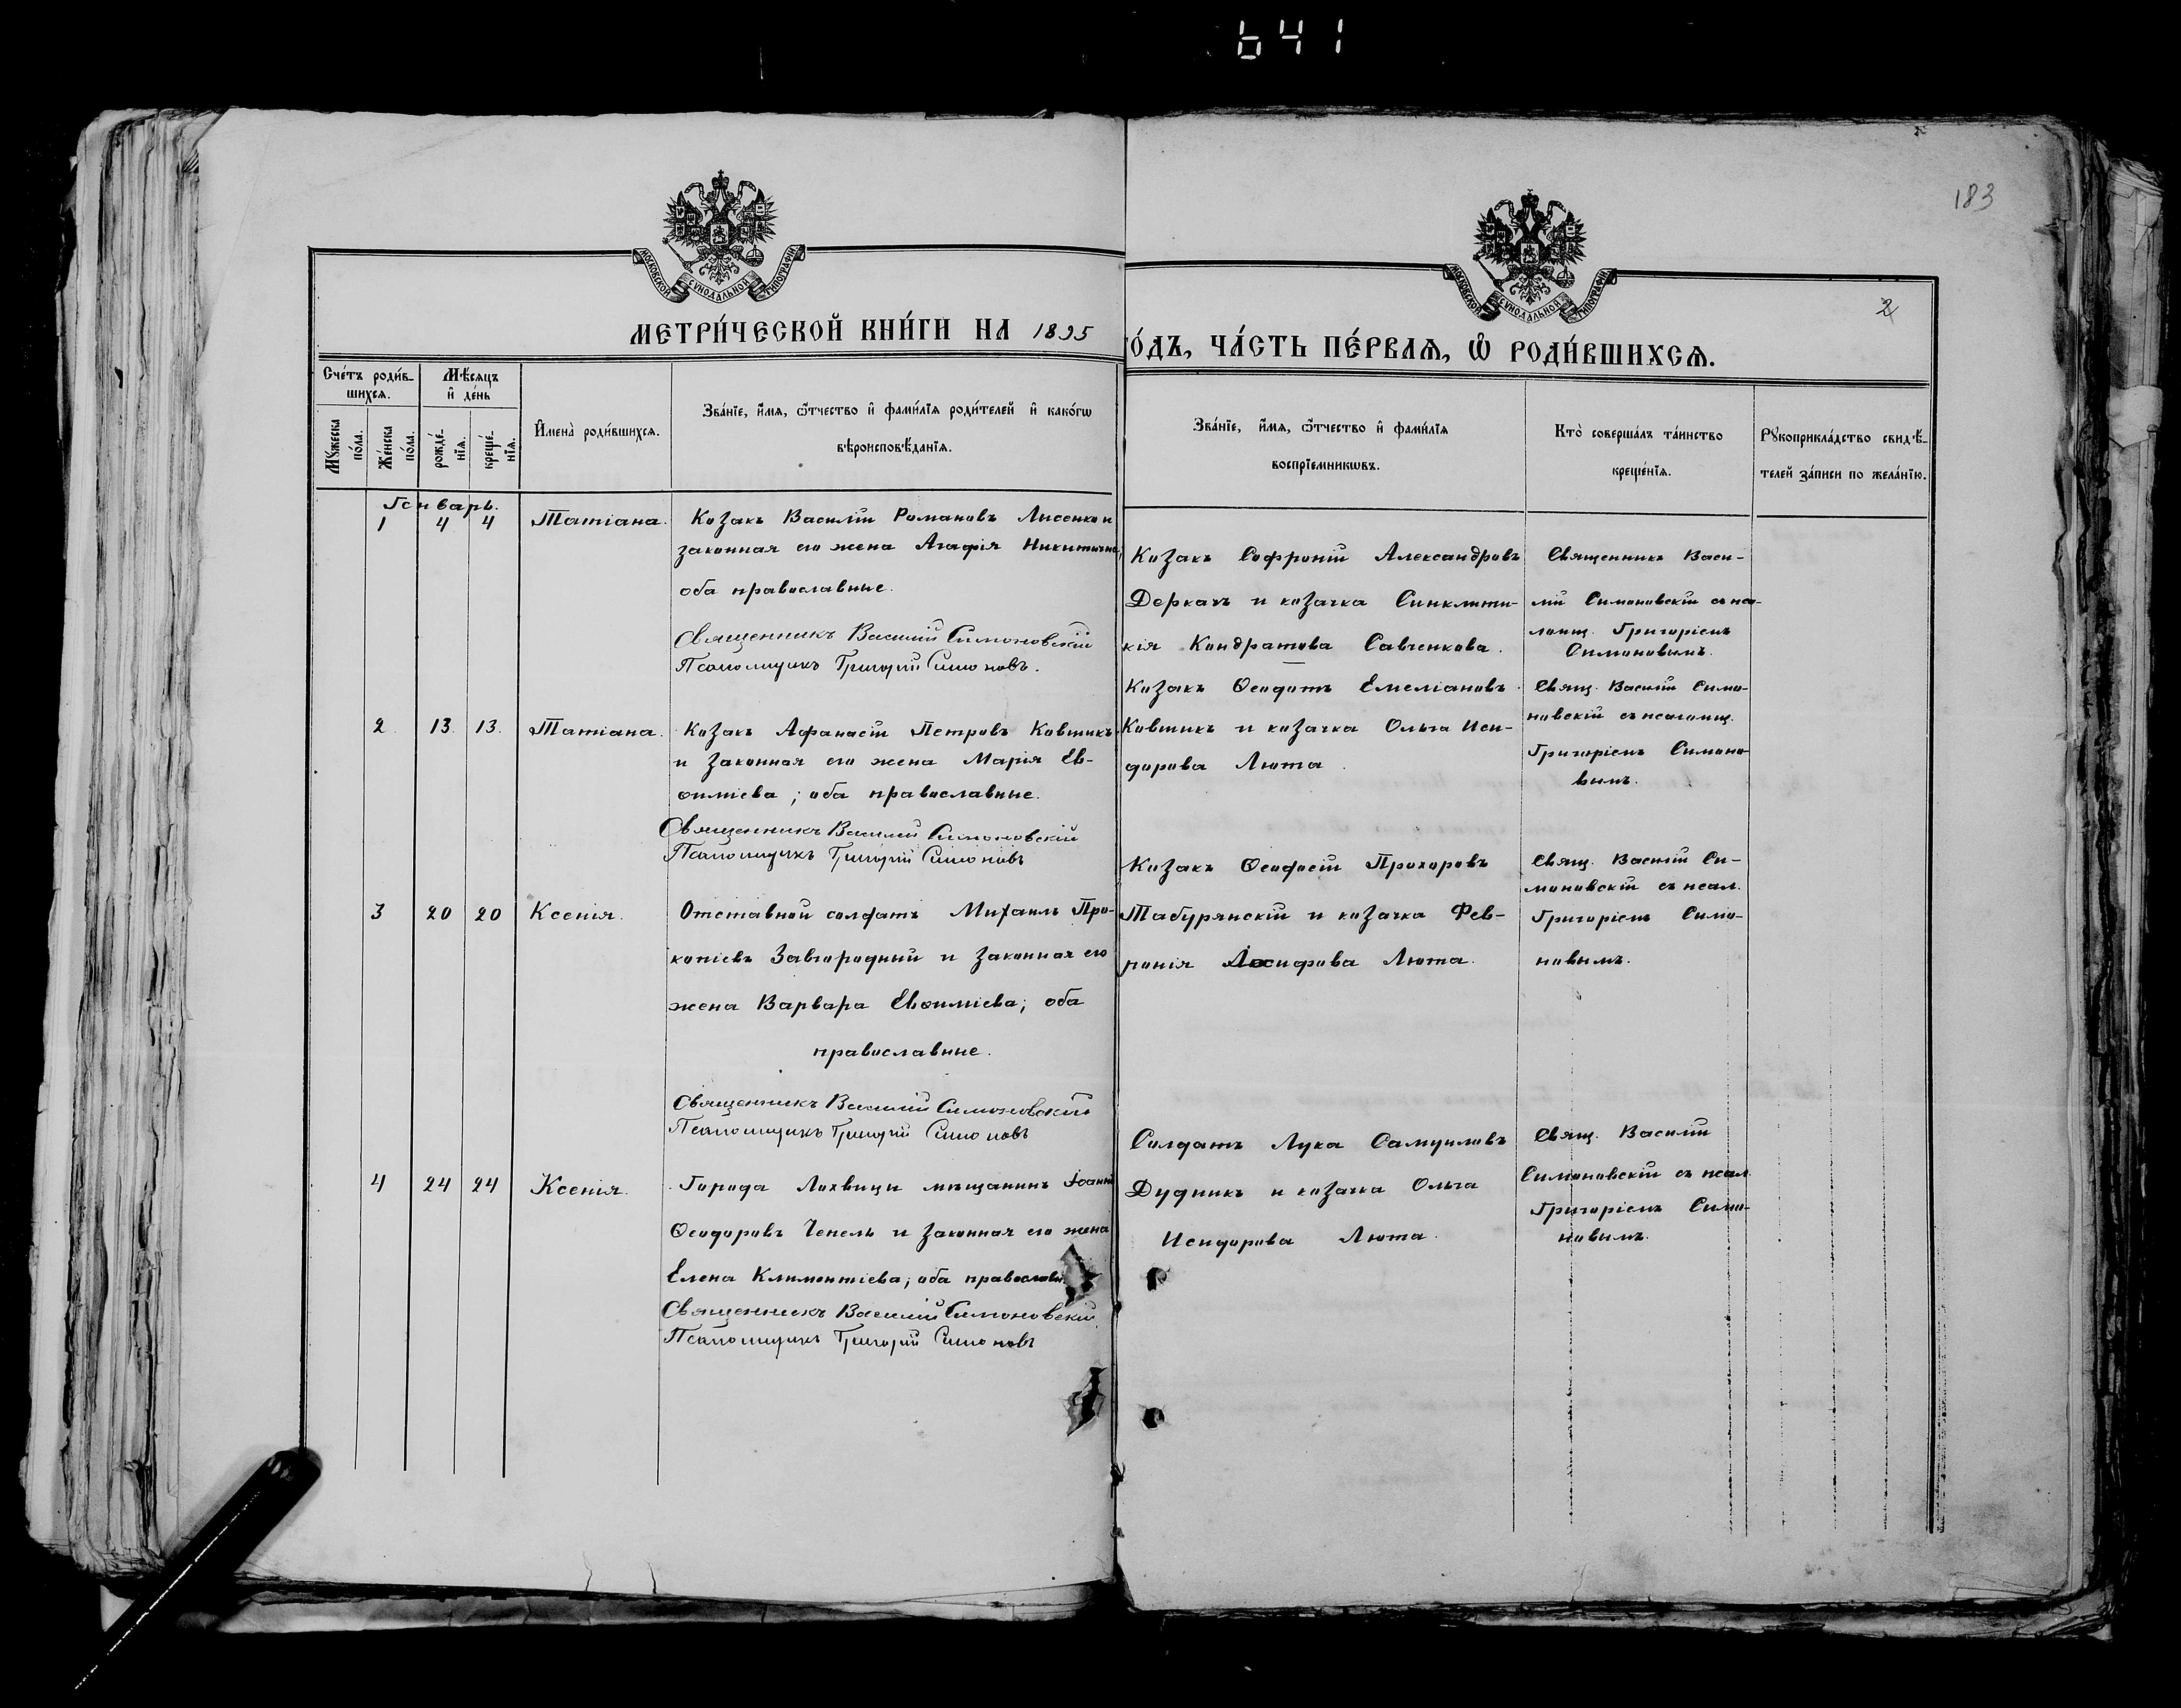 641
183
2
МОСКОВСКОЙ СУНОДАЛЬНОЙ ТИПОГРАФИИ
МОСКОВСКОЙ СУНОДАЛЬНОЙ ТИПОГРАФИИ
МЕТРИ́ЧЕСКОЙ КНИ́ГИ НА 1895
ГО́ДЪ, ЧА́СТЬ ПЕ́РВАЯ, Ѡ РОДИ́ВШИХСЯ.
Сче́тъ роди́в-
шихся.
Мѣ́сяцъ
и де́нь
Мꙋ́жеска
по́ла.
Же́нска
по́ла.
рожде́-
нїя.
креще́-
нїя.
Имена̀ роди́вшихся.
Зва́нїе, и́мя, ѻ́тчество и фами́лїя роди́телей и како́гѡ
вѣроисповѣ́данїя.
Зва́нїе, и́мя, ѻ́тчество и фами́лїя
воспрїемникѡвъ.
Кто̀ соверша́лъ та́инство
креще́нїя.
Рꙋкоприкла́дство свидѣ́-
телей за́писи по жела́нїю.
Генварь.
1 4 4 Татіана.
Козакъ Василій Романовъ Лисенко и
законная его жена Агафія Никитична,
оба православные.
Священникъ Василій Симоновскій
Псаломщикъ Григорій Симоновъ.
Козакъ Софроній Александровъ
Деркачъ и козачка Синклити-
кія Кондратова Савченкова.
Священникъ Васи-
лій Симоновскій съ пса-
ломщ. Григоріемъ
Симоновымъ.
2 13. 13. Татіана.
Козакъ Афанасій Петровъ Ковтикъ
и законная его жена Марія Ев-
ѳиміева; оба православные.
Священникъ Василій Симоновскій
Псаломщикъ Григорій Симоновъ
Козакъ Ѳеодотъ Емеліановъ
Ковтикъ и козачка Ольга Иси-
дорова Люта.
Свящ. Василій Симо-
новскій съ псаломщ.
Григоріемъ Симоно-
вымъ.
3 20 20 Ксенія.
Отставной солдатъ Михаилъ Про-
копіевъ Завгородный и законная его
жена Варвара Евѳиміева; оба
православные.
Священникъ Василій Симоновскій
Псаломщикъ Григорій Симоновъ
Козакъ Ѳеодосій Прохоровъ
Табурянскій и козачка Фев-
ронія Іосифова Люта.
Свящ. Василій Си-
моновскій съ псал.
Григоріемъ Симо-
новымъ.
4 24 24 Ксенія.
Города Лохвицы мѣщанинъ Іоаннъ
Ѳеодоровъ Чепель и законная его жена
Елена Климентіева; оба православн.
Священникъ Василій Симоновскій
Псаломщикъ Григорій Симоновъ
Солдатъ Лука Самуиловъ
Дудникъ и козачка Ольга
Исидорова Люта.
Свящ. Василій
Симоновскій съ псал.
Григоріемъ Симо-
новымъ.